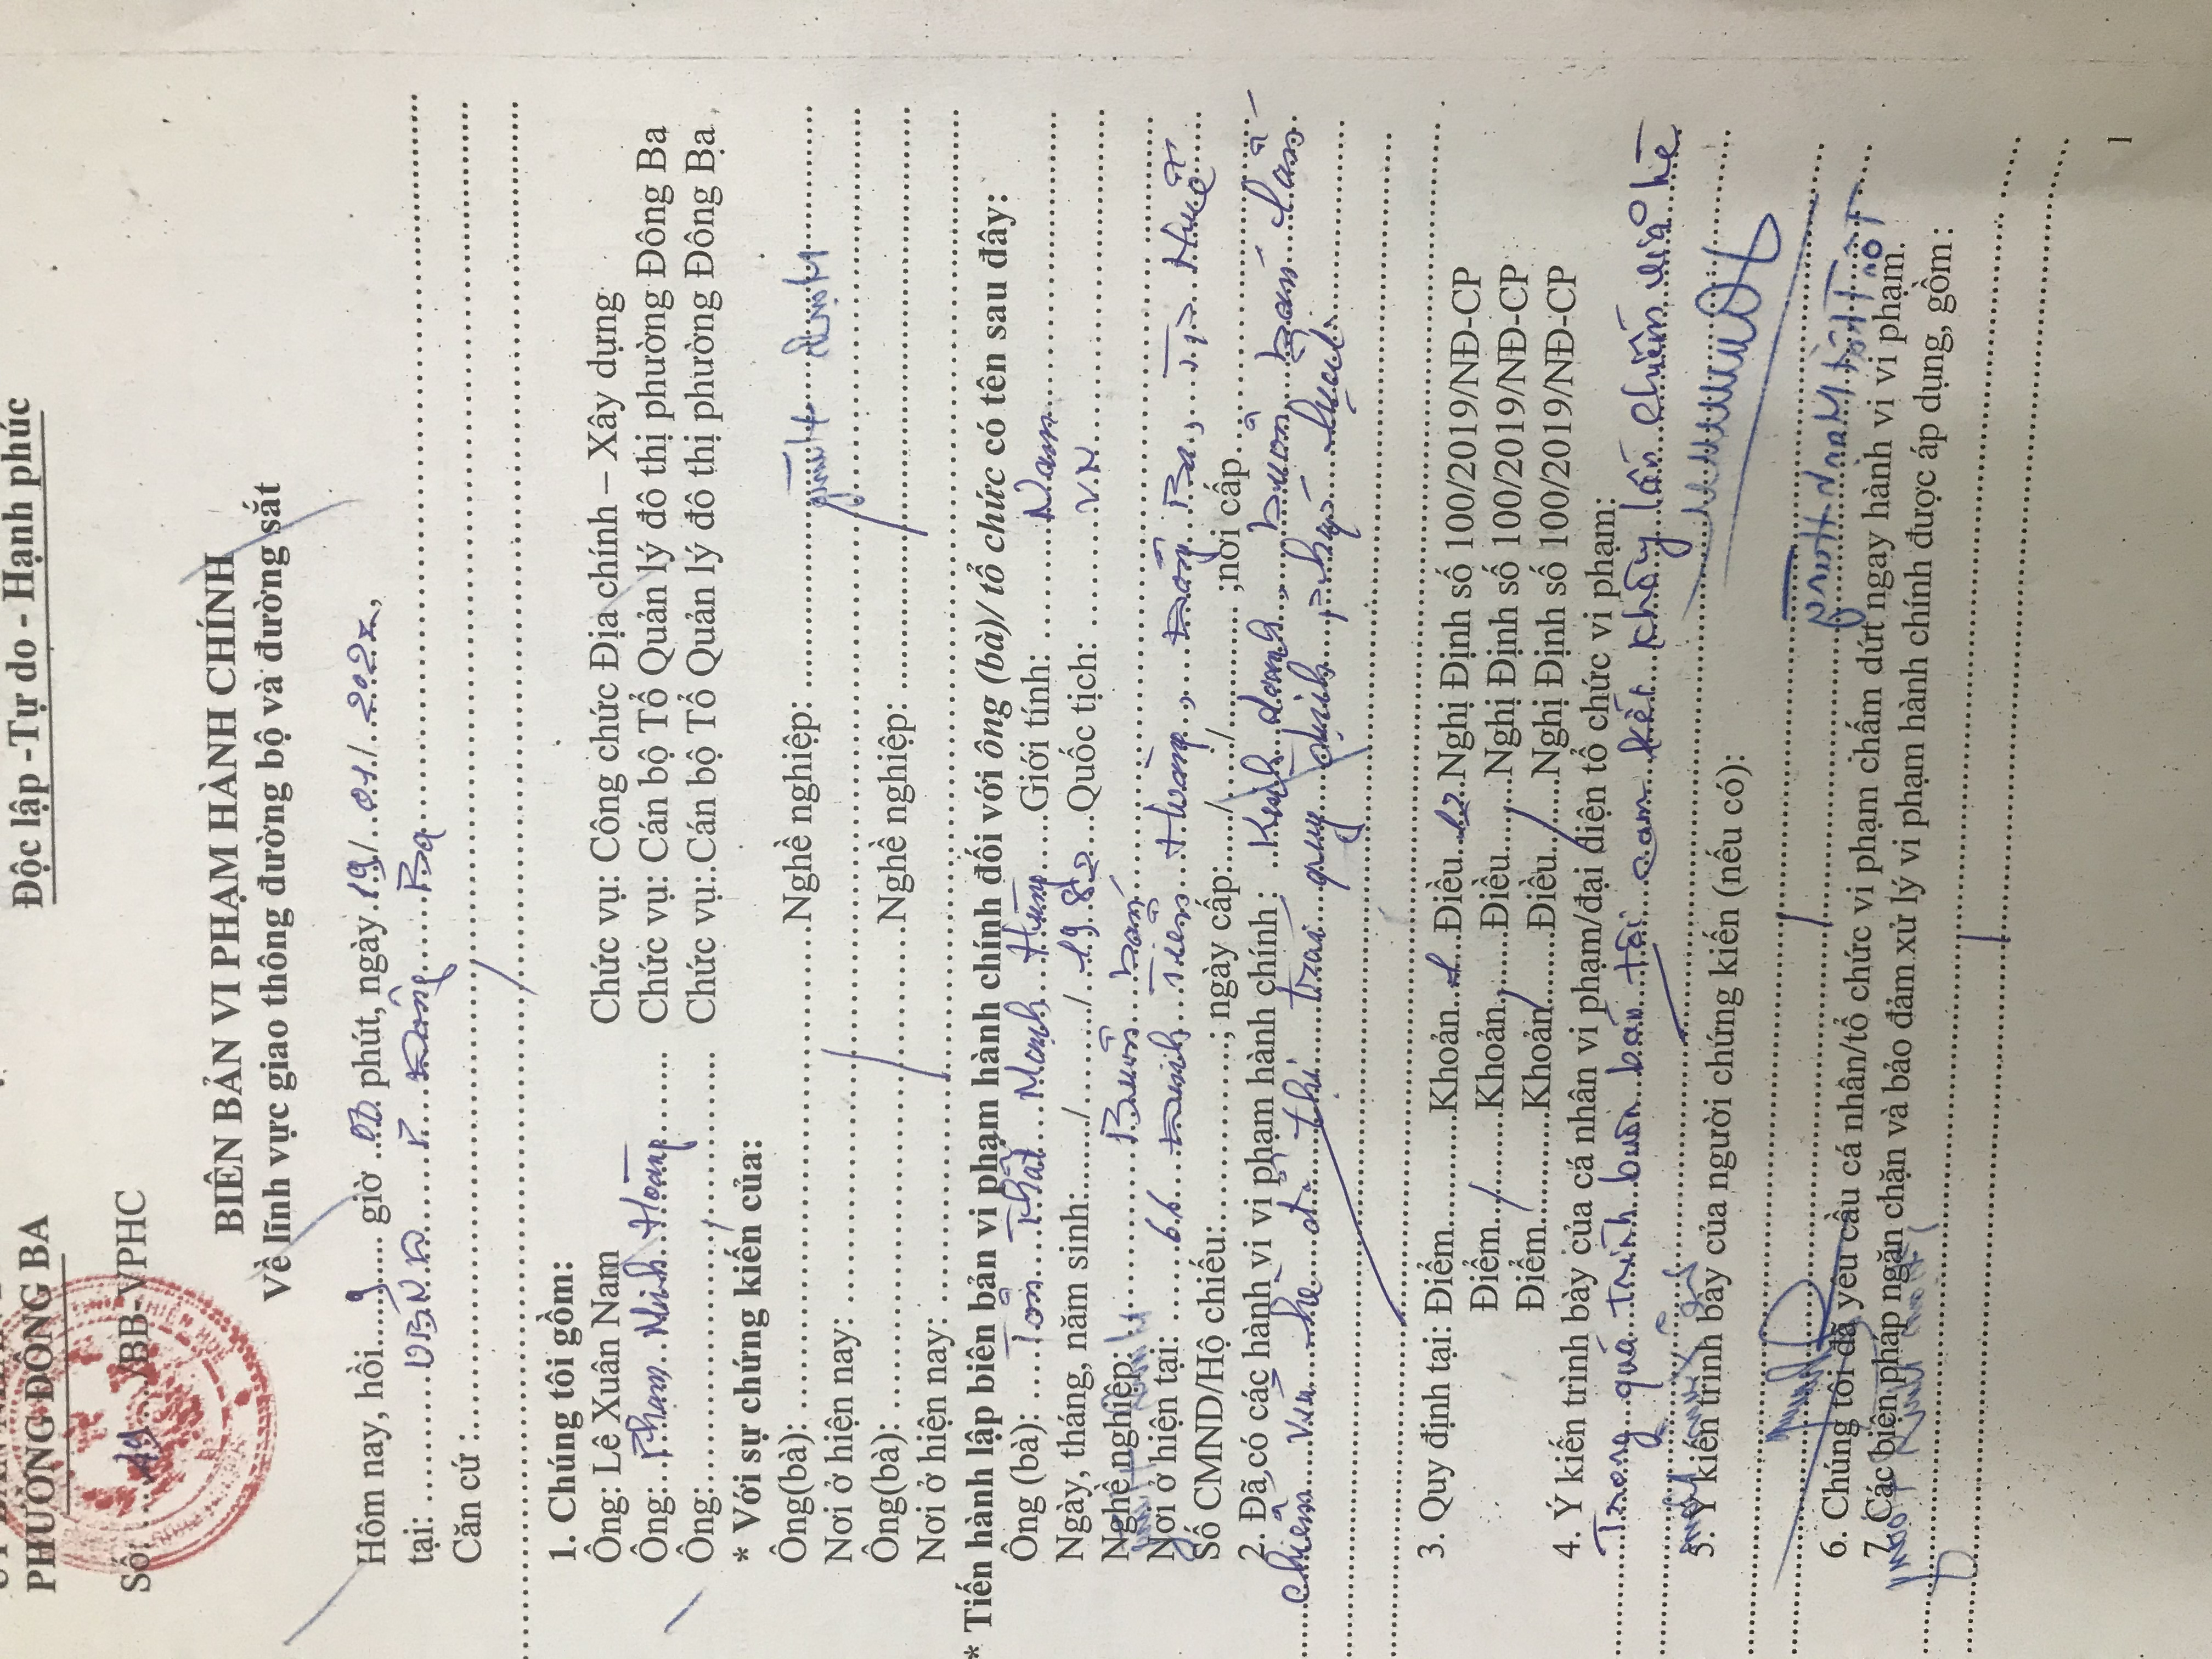 Độc lập -Tự do - Hạnh phúc
PHƯỜNG ĐÔNG BA
Số: 19 /BB-VPHC
BIÊN BẢN VI PHẠM HÀNH CHÍNH
Về lĩnh vực giao thông đường bộ và đường sắt
Hôm nay, hồi 9 giờ 00 phút, ngày 19/ 01/
tại: UBND P. Đông Ba
Căn cứ :
1. Chúng tôi gồm:
Ông: Lê Xuân Nam Chức vụ: Công chức Địa chính – Xây dựng
Ông: Phạm Minh Hoàng Chức vụ: Cán bộ Tổ Quản lý đô thị phường Đông Ba
Ông: Chức vụ: Cán bộ Tổ Quản lý đô thị phường Đông Ba
* Với sự chứng kiến của:
Ông(bà): Nghề nghiệp:
Nơi ở hiện nay:
Ông(bà): Nghề nghiệp:
Nơi ở hiện nay:
* Tiến hành lập biên bản vi phạm hành chính đối với ông (bà)/ tổ chức có tên sau đây:
Ông (bà): Tôn Thất Mạnh Hùng Giới tính: Nam
Ngày, tháng, năm sinh: / / 1982 Quốc tịch: V.N
Nghề nghiệp: Buôn bán
Nơi ở hiện tại: 66 Đinh Tiên Hoàng, Đông Ba, Tp Huế
Số CMND/Hộ chiếu: ; ngày cấp: / / ;nơi cấp
2. Đã có các hành vi vi phạm hành chính : Kinh doanh, buôn bán lấn
chiếm vỉa hè đô thị trái quy định pháp luật.
3. Quy định tại: Điểm Khoản 1 Điều 12 Nghị Định số 100/2019/NĐ-CP
Điểm / Khoản / Điều / Nghị Định số 100/2019/NĐ-CP
Điểm Khoản Điều Nghị Định số 100/2019/NĐ-CP
4. Ý kiến trình bày của cá nhân vi phạm/đại diện tổ chức vi phạm:
Trong quá trình buôn bán tôi cam kết không lấn chiếm vỉa hè
5. Ý kiến trình bày của người chứng kiến (nếu có):
6. Chúng tôi đã yêu cầu cá nhân/tổ chức vi phạm chấm dứt ngay hành vi vi phạm.
7. Các biện pháp ngăn chặn và bảo đảm xử lý vi phạm hành chính được áp dụng, gồm:
1